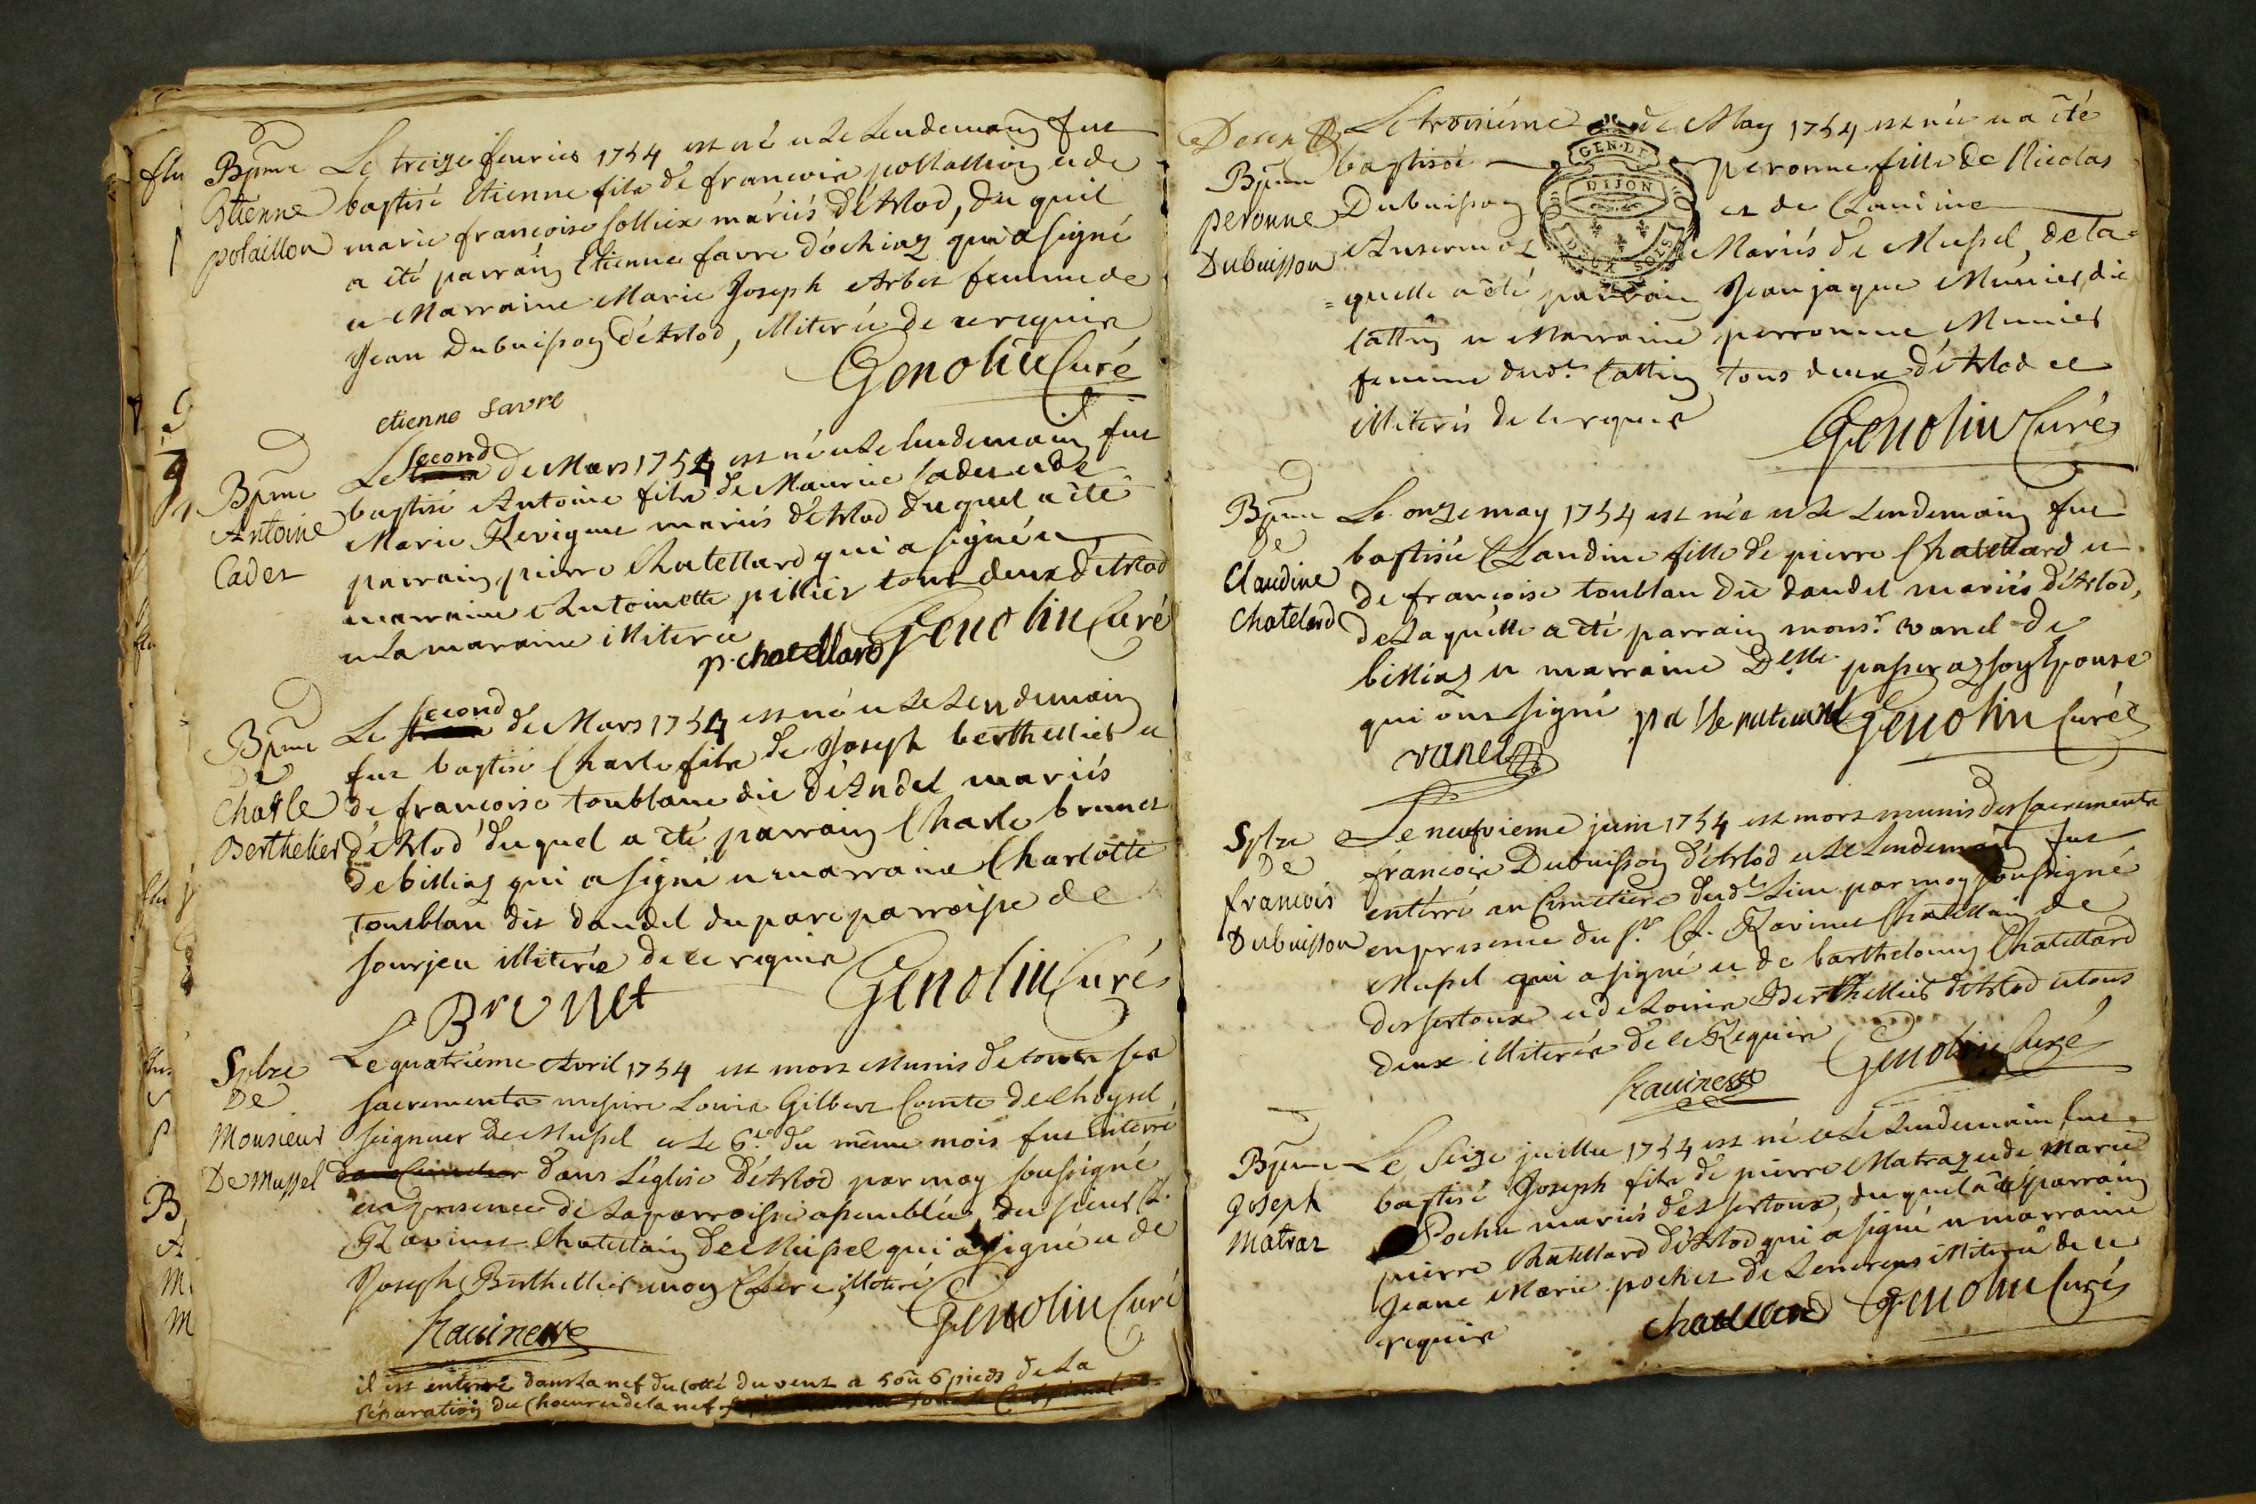 Bpme
Etienne
polaillon
Le treize fevrier 1754 est né et le lendemain fut
baptisé Etienne fils de francois pollallion et de
marie francoise sollieu mariés d'Arlod, du quel
a été parrain Etienne favre d'ochiaz qui a signé
et Marraine Marie Joseph Arbet femme de
Jean Dubuisson d'Arlod, illiterée de ce requise
Genolin Curé
etienne favre
Bpme
Antoine
Cadet
Le second de Mars 1754 est né et le lendemain fut
baptisé Antoine fils de Maurice Cadet et de
Marie Revigne mariés d'Arlod duquel a été
parrain pierre Chatellard qui a signé et
marraine Antoinette pillier tous deux d'Arlod
et la maraine illiterée
p. chatellard Genolin Curé
Bpme
De
Charle
Berthelier
Le second de Mars 1754 est né et le lendemain
fut baptisé Charle fils de Joseph berthellier et
de francoise toublanc dit d'Andel mariés
d'Arlod duquel a été parrain Charle brunet
de billiaz qui a signé et marraine Charlotte
toublan dit dandel du parc parroisse de
sourjeu illiterée de ce requise
Brunet Genolin Curé
Splre
De
Monsieur
De Mussel
Le quatriéme Avril 1754 est mort Munis de toute ses
sacrements messire Louis Gilbert Comte de Choysel
seigneur De Mussel et le 6.e du même mois fut enterré
dans L'église d'Arlod par moy soussigné
en presence de La parroisse assemblée, du sieur
Ravinet Chatellain de Mussel qui a signé et de
Joseph Berthellier mon Clerc illiteré
Ravinet Genolin Curé
il est enterré dans la nef du cotté du vent a 5 ou 6 pieds de la
séparation du Choeur et de la nef
Le troisiéme de May 1754 est née et a été
Bpme
peronne
Dubuisson
baptisée peronne fille de Nicolas
GEN. DE
DIJON
DEUX SOLS
Dubuisson et de Claudine
Ansermoz Mariés de Mussel, de la=
=quelle a été parrain Jean jaque Munier, dit
Cattin et Marraine perronne Munier
femme dud.t Cattin tous deux d'Arlod et
illiterés de ce requis
Genolin Curé
Bpme
De
Claudine
Chatelard
Le onze may 1754 est née et le Lendemain fut
baptisée Claudine fille de pierre Chatellard et
de françoise toublan dit dandel mariés d'Arlod,
de Laquelle a été parrain mons.r vanel de
billiaz et marraine D.elle passeraz son Epouse
qui ont signé
vanel Genolin Curé
Splre
De
francois
Dubuisson
Le neufvieme juin 1754 est mort munis des sacrements
francois Dubuisson d'Arlod et le Lendemain fut
entérré au Cimetiere dud.t Lieu par moy soussigné
en presence du s.r Ravinet Chatellain de
Mussel qui a signé et de barthelomy Chatellard
des sertoux et de Louis Berthellier d'Arlod et tous
deux illiterés de ce Requis
Ravinet Genolin Curé
Bpme
Joseph
Matraz
Le Seize juillet 1754 est né et le lendemain fut
baptisé Joseph fils de pierre Matraz et de Marie
Pochet mariés des sertoux, du quel a été parrain
pierre Chatellard d'Arlod qui a signé et marraine
Jeane Marie pochet de illiterée de ce
requise
chatellard Genolin Curé